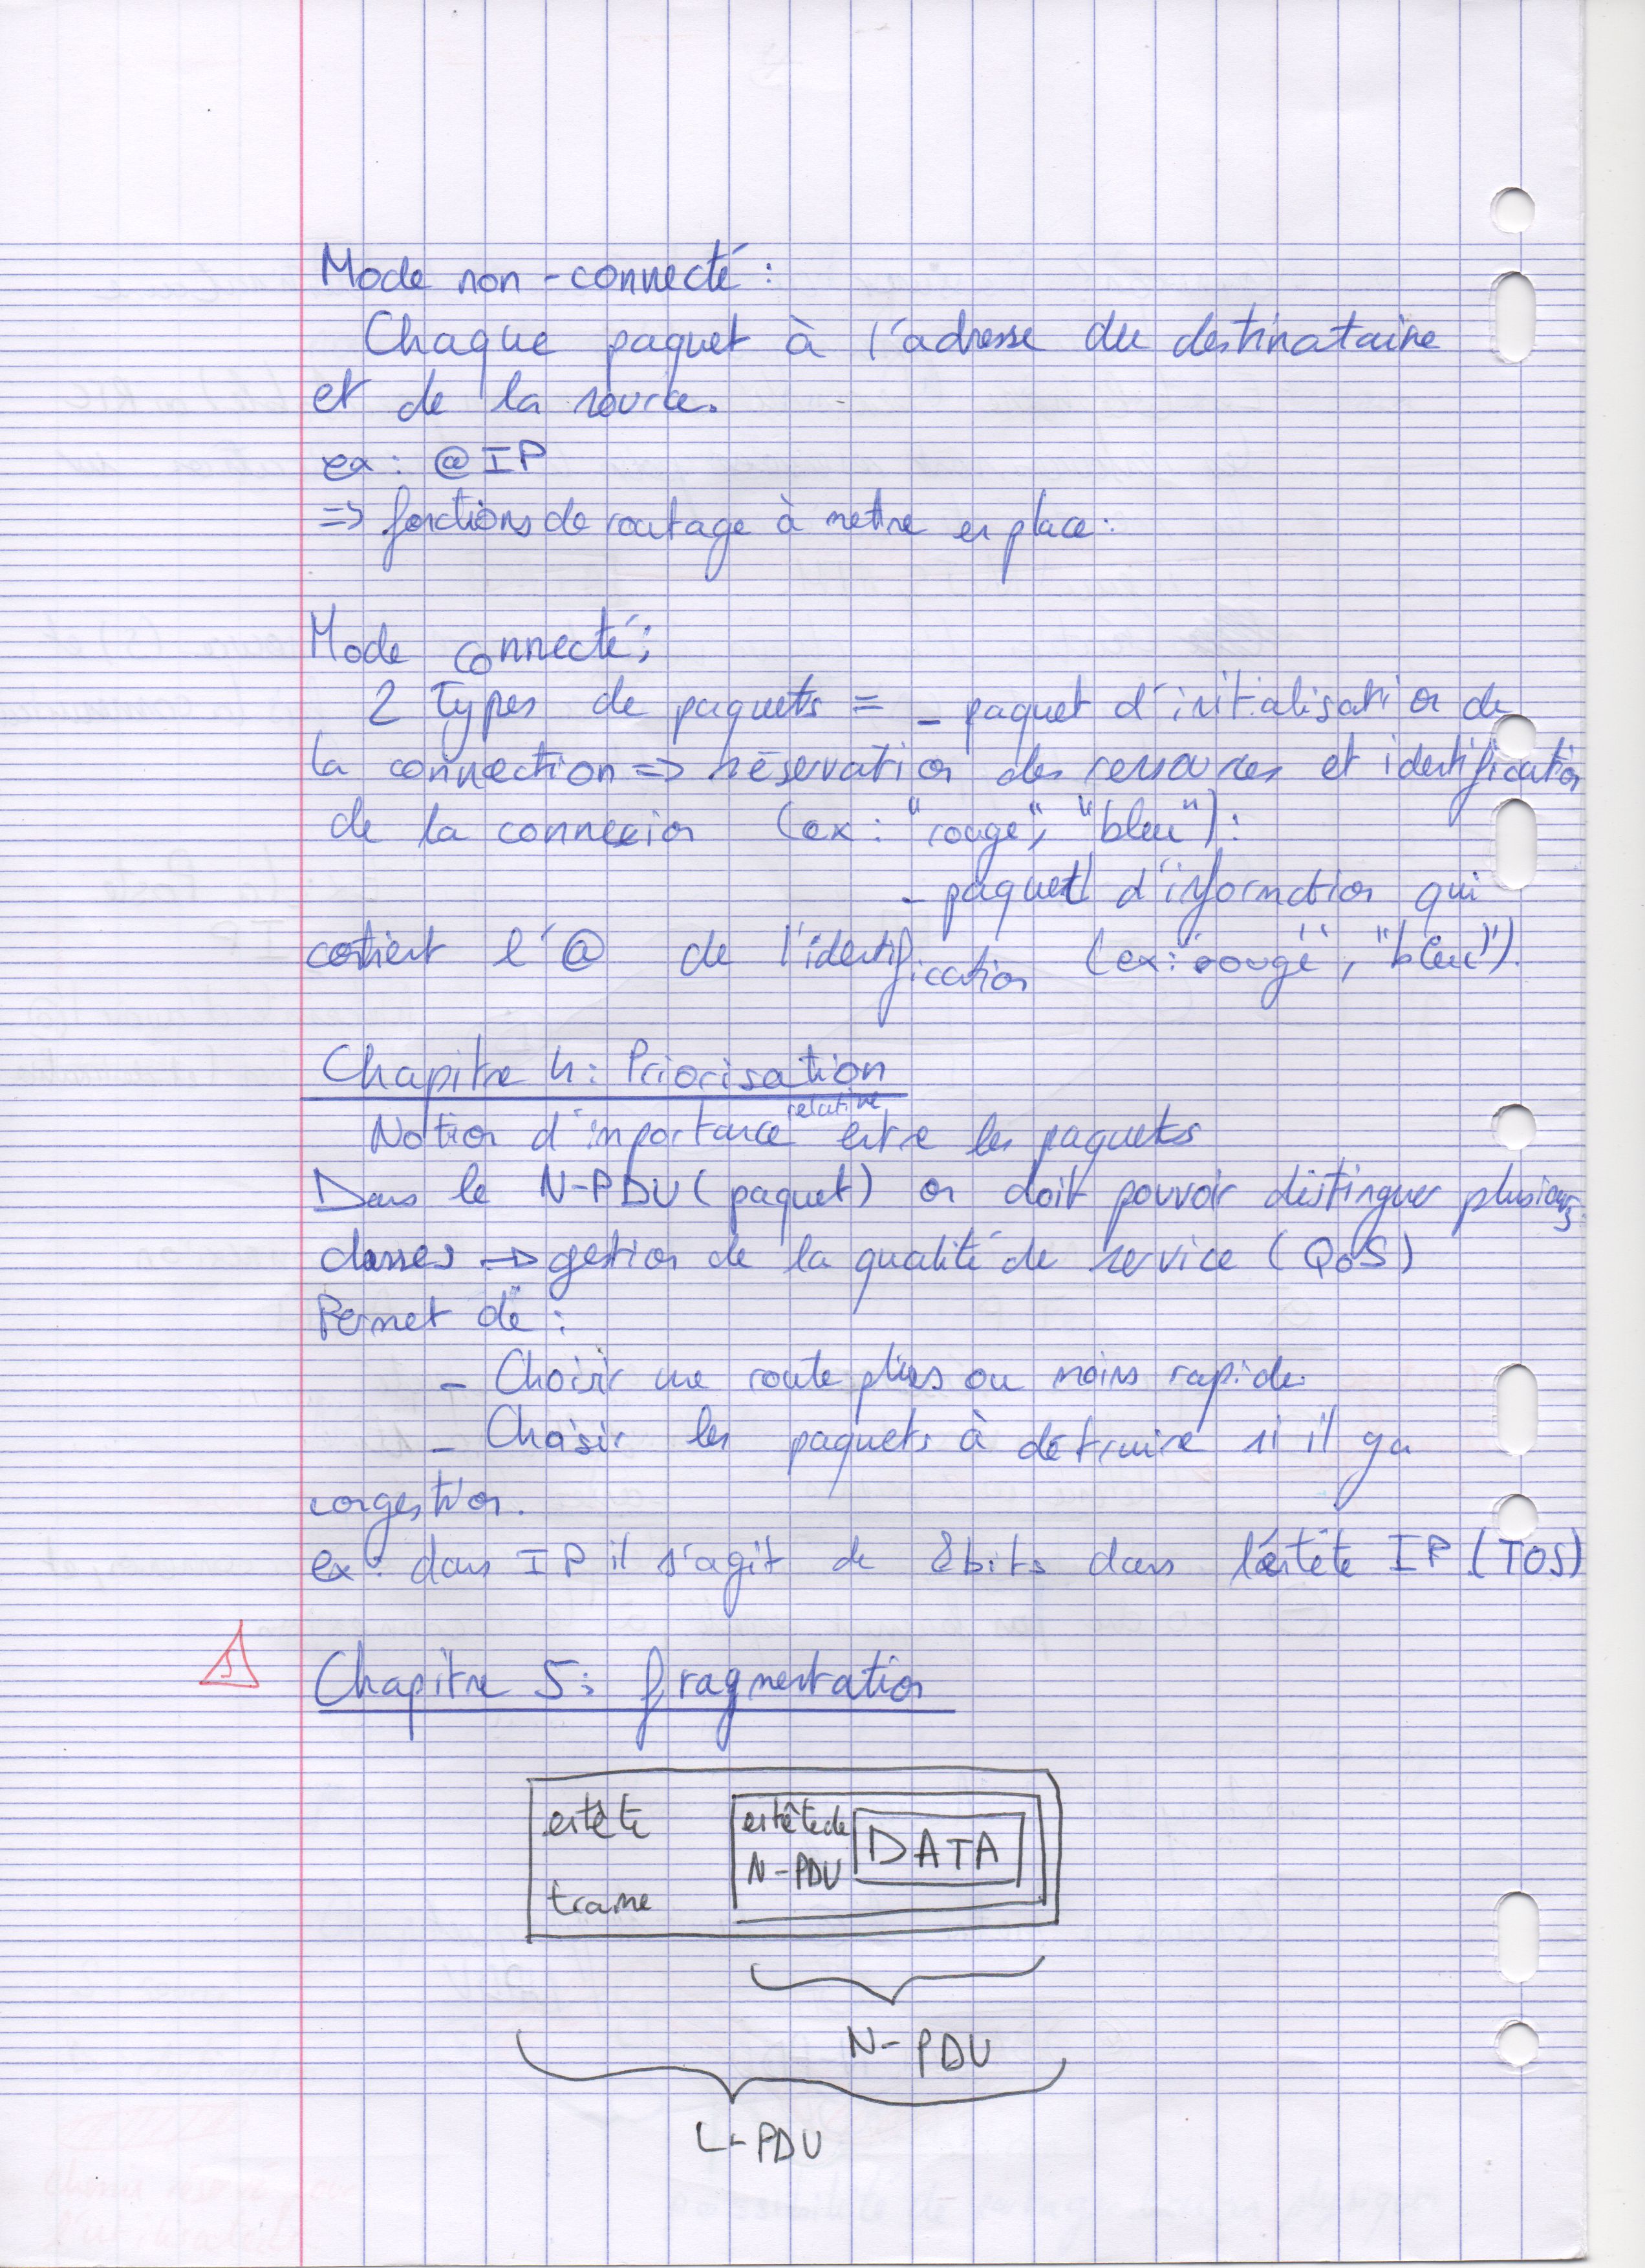 Mode non-connecté :
Chaque paquet à l'adresse du destinataire
et de la source.
ex : @IP
=> fonctions de routage à mettre en place.
Mode connecté :
2 Types de paquets = - paquet d'initialisation de
la connection => réservation des ressources et identification
de la connexion (ex : "rouge", "bleu") :
- paquet d'information qui
contient l'@ de l'identification (ex : "rouge", "bleu").
Chapitre 4 : Priorisation
Notion d'importance relative entre les paquets
Dans le N-PDU (paquet) on doit pouvoir distinguer plusieurs
classes -> gestion de la qualité de service (QoS)
Permet de :
- Choisir une route plus ou moins rapide.
- Choisir les paquets à détruire si il y a
congestion.
ex : dans IP il s'agit de 8bits dans l'entête IP (TOS)
Chapitre 5 : fragmentation
entête
trame
entête de
N-PDU
DATA
N-PDU
L-PDU